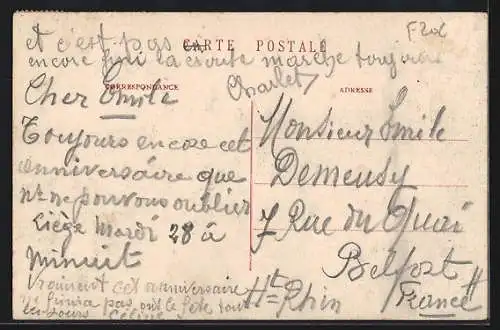 et c'est pas
CARTE POSTALE
encore fini la croute marche toujours
Charlet
CORRESPONDANCE
ADRESSE
Cher Emile
Toujours encore cet
anniversaire que
ns ne pouvons oublier
Liège Mardi 28 à
minuit
Vraiment cet anniversaire
ne finira pas, on le fête tous
les jours Céline
Monsieur Emile
Demeusy
7 Rue du Quai
Belfort
Ht=Rhin
France